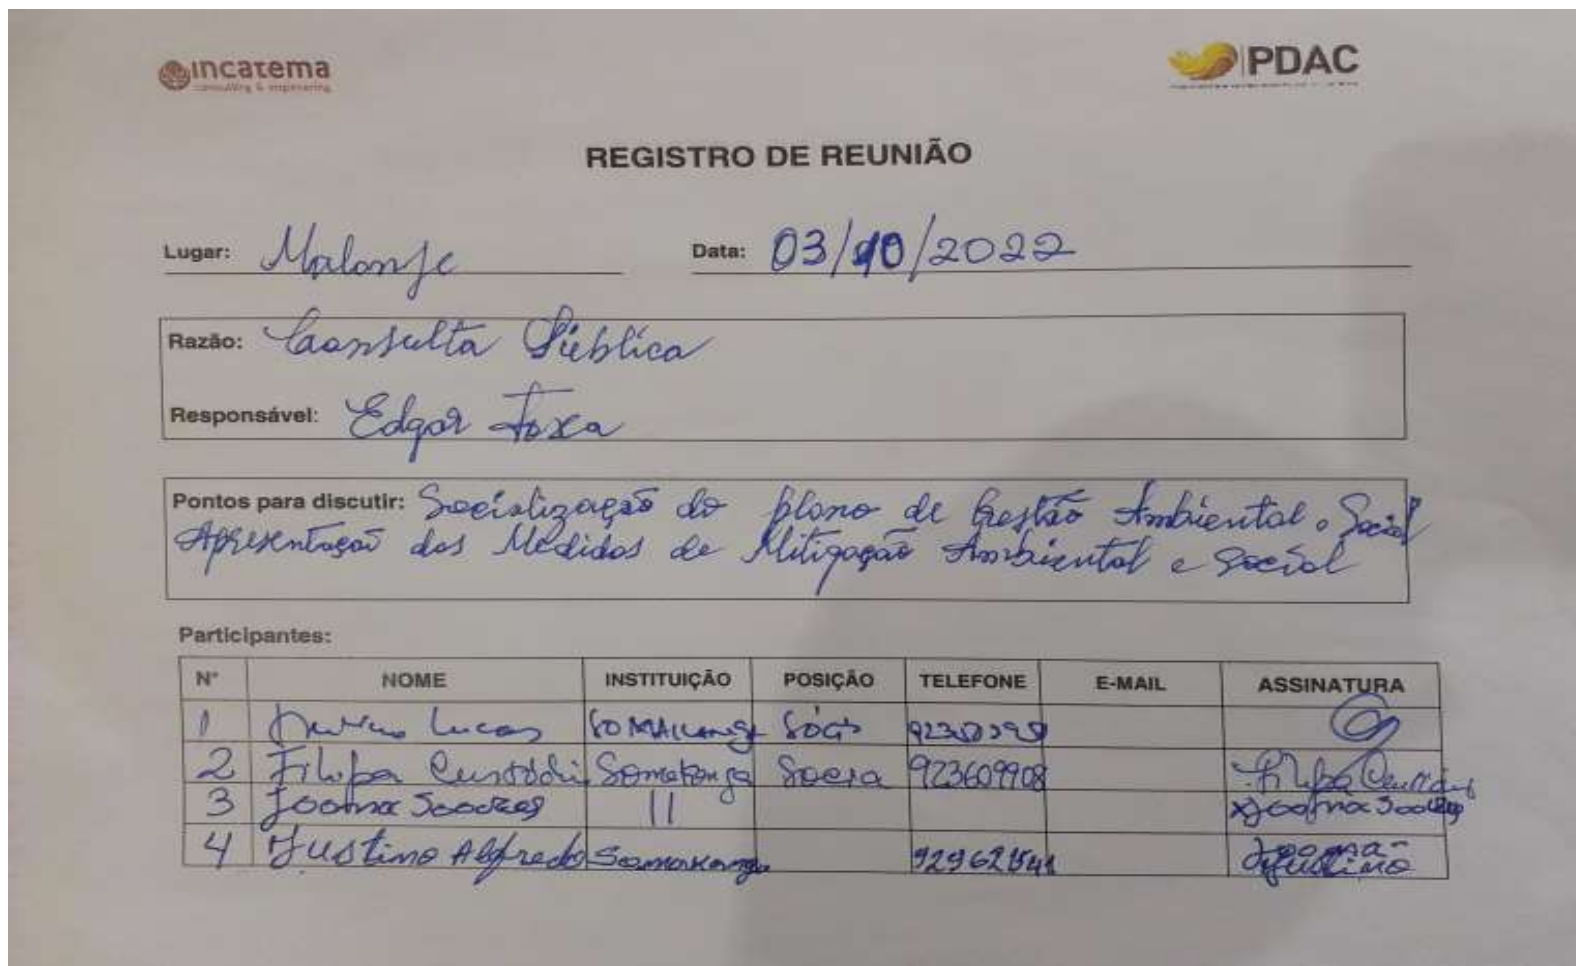 incatema
consulting & engineering
PDAC
REGISTRO DE REUNIÃO
Lugar: Malanje Data: 03/10/2022
Razão: Consulta Pública
Responsável: Edgar Foxa
Pontos para discutir: Socialização do plano de Gestão Ambiental e Social
Apresentação das Medidas de Mitigação Ambiental e Social
Participantes:
Nº NOME INSTITUIÇÃO POSIÇÃO TELEFONE E-MAIL ASSINATURA
1 Lucas
2 Filipa Custódi Somakanga Socia 923609908
3 Joana Soares 11 Joana Soares
4 Justino Alfredo Somakanga 929621541